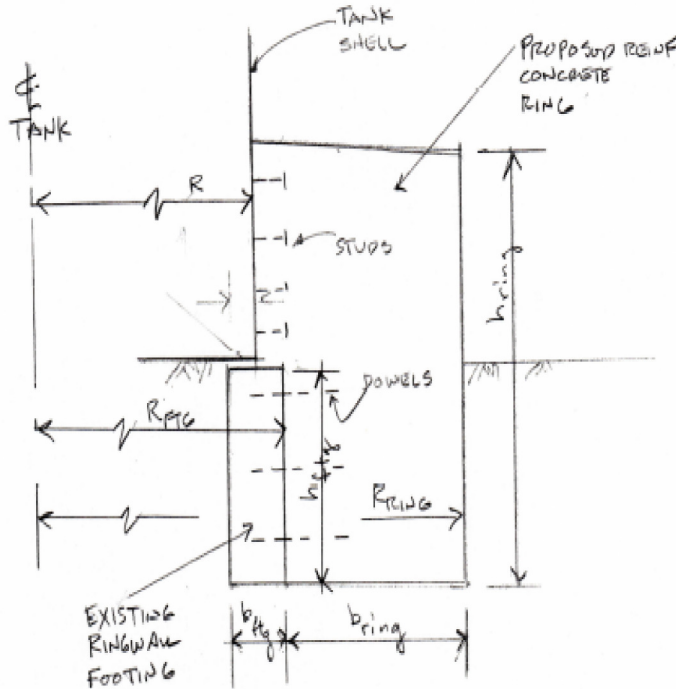 TANK
SHELL
PROPOSED REINF
CONCRETE
RING
℄
TANK
R
STUDS
hring
DOWELS
RFTG
hftg
RRING
EXISTING
RINGWALL
FOOTING
bftg
bring